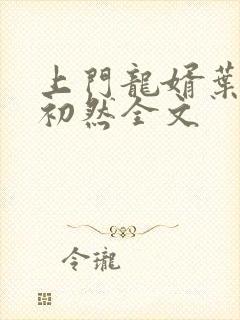 上門龍婿葉
初然全文
令瓏